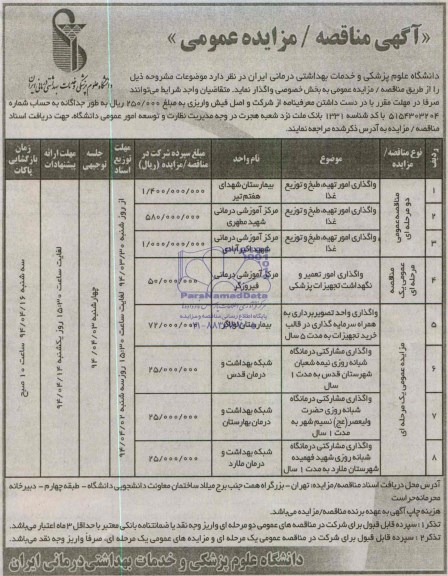 «آگهی مناقصه / مزایده عمومی»
دانشگاه علوم پزشکی و خدمات بهداشتی درمانی ایران
دانشگاه علوم پزشکی و خدمات بهداشتی درمانی ایران در نظر دارد موضوعات مشروحه ذیل
را از طریق مناقصه / مزایده عمومی به بخش خصوصی واگذار نماید. متقاضیان واجد شرایط می‌توانند
صرفا در مهلت مقرر با در دست داشتن معرفینامه از شرکت و اصل فیش واریزی به مبلغ ۲۵۰/۰۰۰ ریال به طور جداگانه به حساب شماره
با کد شناسه ۱۳۳۱ بانک ملت نزد شعبه هجرت در وجه مدیریت نظارت و توسعه امور عمومی دانشگاه، جهت دریافت اسناد
مناقصه / مزایده به آدرس ذکر شده مراجعه نمایند.
ردیف
نوع مناقصه / مزایده
موضوع
نام واحد
مبلغ سپرده شرکت در مناقصه/ مزایده (ریال)
مهلت توزیع اسناد
جلسه توجیهی
مهلت ارائه پیشنهادات
زمان بازگشایی پاکات
مناقصه عمومی دو مرحله ای
۱
واگذاری امور تهیه، طبخ و توزیع غذا
بیمارستان شهدای هفتم تیر
۱/۴۰۰/۰۰۰/۰۰۰
۲
واگذاری امور تهیه، طبخ و توزیع غذا
مرکز آموزشی درمانی شهید مطهری
۵۸۰/۰۰۰/۰۰۰
۳
واگذاری امور تهیه، طبخ و توزیع غذا
مرکز آموزشی درمانی شهید اکبرآبادی
۱/۰۰۰/۰۰۰/۰۰۰
مناقصه عمومی یک مرحله ای
۴
واگذاری امور تعمیر و نگهداشت تجهیزات پزشکی
مرکز آموزشی درمانی فیروزگر
۵۰/۰۰۰/۰۰۰
مزایده عمومی یک مرحله ای
۵
واگذاری واحد تصویربرداری به همراه سرمایه گذاری در قالب خرید تجهیزات به مدت ۵ سال
بیمارستان لولاگر
۷۲/۰۰۰/۰۰۰
۶
واگذاری مشارکتی درمانگاه شبانه روزی نیمه شعبان شهرستان قدس به مدت ۱ سال
شبکه بهداشت و درمان قدس
۲۵/۰۰۰/۰۰۰
۷
واگذاری مشارکتی درمانگاه شبانه روزی حضرت ولیعصر(عج) نسیم شهر به مدت ۱ سال
شبکه بهداشت و درمان بهارستان
۲۵/۰۰۰/۰۰۰
۸
واگذاری مشارکتی درمانگاه شبانه روزی شهید فهمیده شهرستان ملارد به مدت ۱ سال
شبکه بهداشت و درمان ملارد
۲۵/۰۰۰/۰۰۰
از روز شنبه ۹۴/۰۳/۳۰ لغایت ساعت ۱۵:۳۰ روز سه شنبه ۹۴/۰۴/۰۲
چهارشنبه ۹۴/۰۴/۰۳
لغایت ساعت ۱۵:۳۰ روز یکشنبه ۹۴/۰۴/۱۴
سه شنبه ۹۴/۰۴/۱۶ ساعت ۱۰ صبح
ParsNamadData
پایگاه اطلاع رسانی مناقصه و مزایده
آدرس محل دریافت اسناد مناقصه/مزایده: تهران - بزرگراه همت جنب برج میلاد ساختمان معاونت دانشجویی دانشگاه - طبقه چهارم - دبیرخانه
محرمانه حراست
هزینه چاپ آگهی به عهده برنده مناقصه/مزایده می‌باشد.
تذکر ۱: سپرده قابل قبول برای شرکت در مناقصه های عمومی دو مرحله ای واریز وجه نقد یا ضمانتنامه بانکی معتبر با حداقل ۳ ماه اعتبار می‌باشد.
تذکر ۲: سپرده قابل قبول برای شرکت در مناقصه عمومی یک مرحله ای و مزایده های عمومی یک مرحله ای، صرفا واریز وجه نقد می‌باشد.
دانشگاه علوم پزشکی و خدمات بهداشتی درمانی ایران